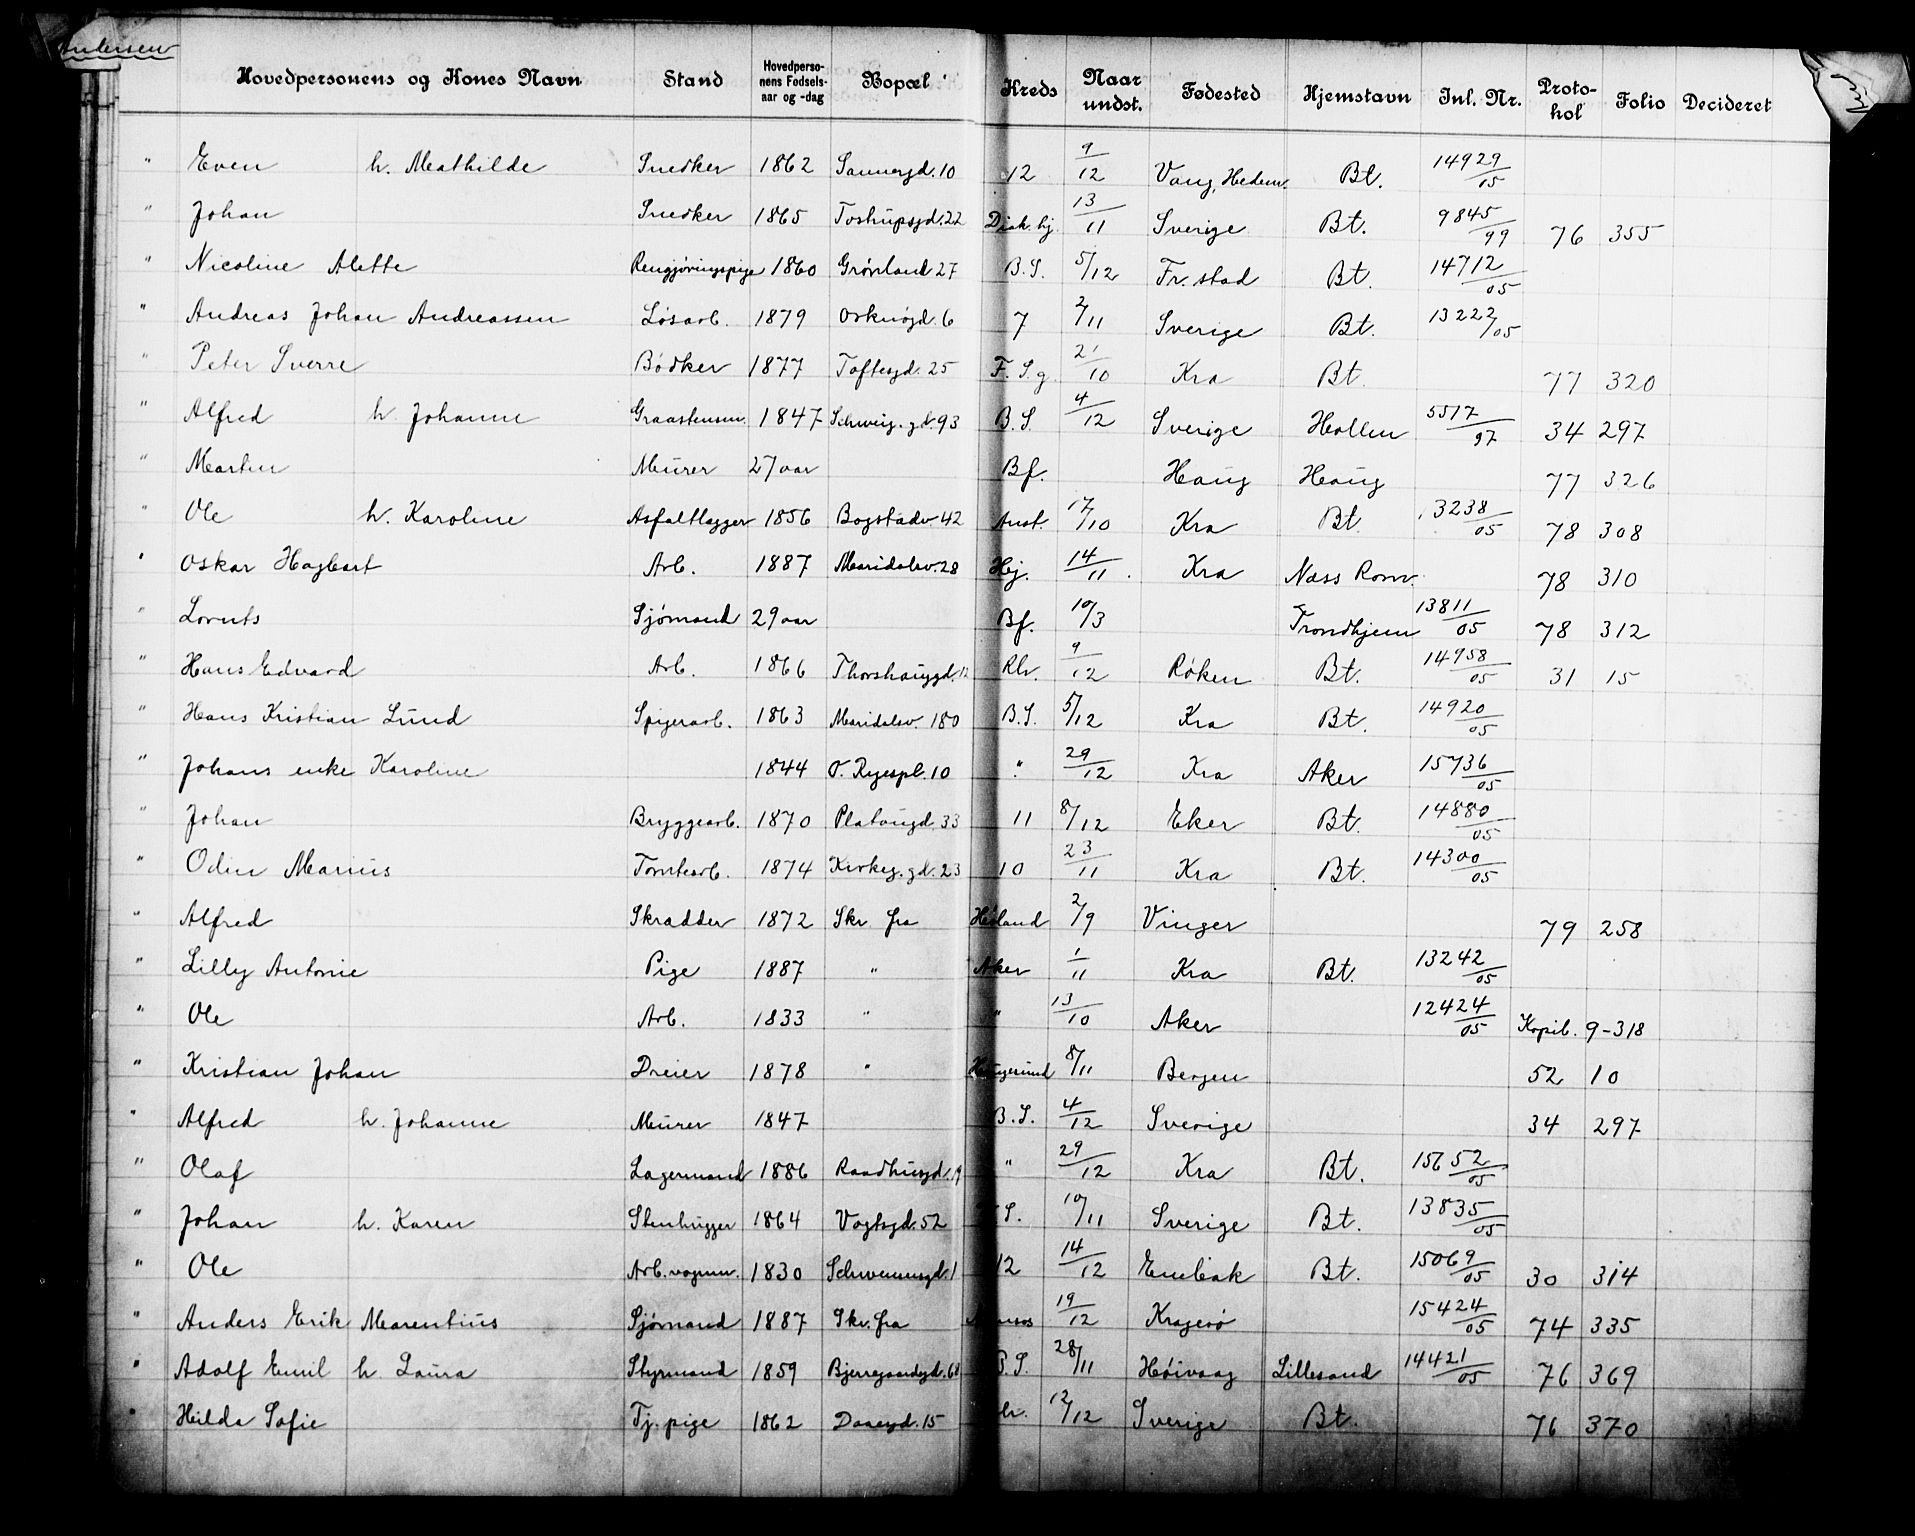 Andersen
Hovedpersonens og Kones Navn Stand Hovedpersonens Fødselsaar og -dag Bopæl Kreds Naar undst. Fødested Hjemstavn Inl. Nr. Protokol Folio Decideret
" Even h. Mathilde Snedker 1862 Sannergd. 10 12 9/12 Vang, Hedem. Bt. 14929/05
" Johan Snedker 1865 Tostrupsgd. 22 Diak. hj 13/11 Sverige Bt. 9845/99 76 355
" Nicoline Alette Rengjøringspige 1860 Grønland 27 B.S. 5/12 Fr.stad Bt. 14712/05
" Andreas Johan Andreassen Løsarb. 1879 6 7 2/11 Sverige Bt. 13222/05
" Peter Sverre Bødker 1877 Toftesgd. 25 F.S.g. 21/10 Kra Bt. 77 320
" Alfred h. Johanne Graastensm. 1847 Schweig.gd. 93 B.S. 4/12 Sverige Hallen 5517/97 34 297
" Martin Murer 27 aar Bf. Haug Haug 77 326
" Ole h. Karoline Asfaltlægger 1856 Bogstadv. 42 Anst. 17/10 Kra Bt. 3238/05 78 308
" Oskar Hagbart Arb. 1887 Maridalsv. 28 Hj. 14/11. Kra Næss Rom. 78 310
" Lornts Sjømand 29 aar Bf. 10/3 Trondhjem 13811/05 78 312
" Hans Edvard Arb. 1866 Thorshauggd. 12 Rh. 9/12 Røken Bt. 14958/05 31 15
" Hans Kristian Lund Spigerarb. 1863 Maridalsv. 180 B.S. 5/12 Kra Bt. 14920/05
" Johans enke Karoline 1844 O. Ryespl. 10 " 29/12 Kra Aker 15736/05
" Johan Bryggearb. 1870 Platougd. 33 11 8/12 Eker Bt. 14880/05
" Odin Marius Tomtearb. 1874 Kirkeg.gd. 23 10 23/11 Kra Bt. 14300/05
" Alfred Skrædder 1872 Skr. fra Høland 2/9 Vinger 79 258
" Lilly Antonie Pige 1887 " Aker 1/11 Kra Bt. 13242/05
" Ole Arb. 1833 " " 13/10 Aker 12424/05 Kopib. 9-318
" Kristian Johan Dreier 1878 " Haugesund 8/11 Bergen 52 10
" Alfred h. Johanne Murer 1847 B.S. 4/12 Sverige 34 297
" Olaf Lagermand 1886 Raadhusgd. 19 " 29/12 Kra Bt. 15652/05
" Johan h. Karen Stenhugger 1864 Vogtsgd. 52 S. 10/11 Sverige Bt. 13835/05
" Ole Arb.vognm. 1830 Schwensensgd. 1 12 14/12 Enebak Bt. 15069/05 30 314
" Anders Erik Marentius Sjømand 1887 Skr. fra 19/12 Kragerø 15424/05 74 335
" Adolf Emil h. Laura Styrmand 1859 Bjerregaardsgd. 60 P.S. 28/11 Høivaag Lillesand 14421/05 76 369
" Hilda Sofie Tj. pige 1862 Daaegd. 15 12/12 Sverige Bt. 76 370